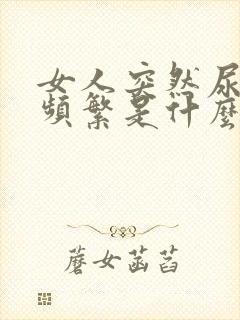 女人突然尿
频繁是什麼
蘑女菡萏